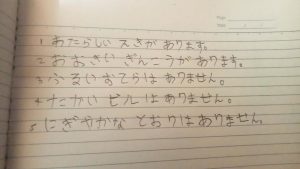 1 あたらしい えきが あります。
2 おおきい ぎんこうが あります。
3 ふるい おてらは ありません。
4 たかい ビルは ありません。
5 にぎやかな とおりは ありません。